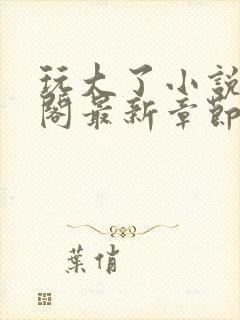 玩大了小説
閣最新章節
葉俏